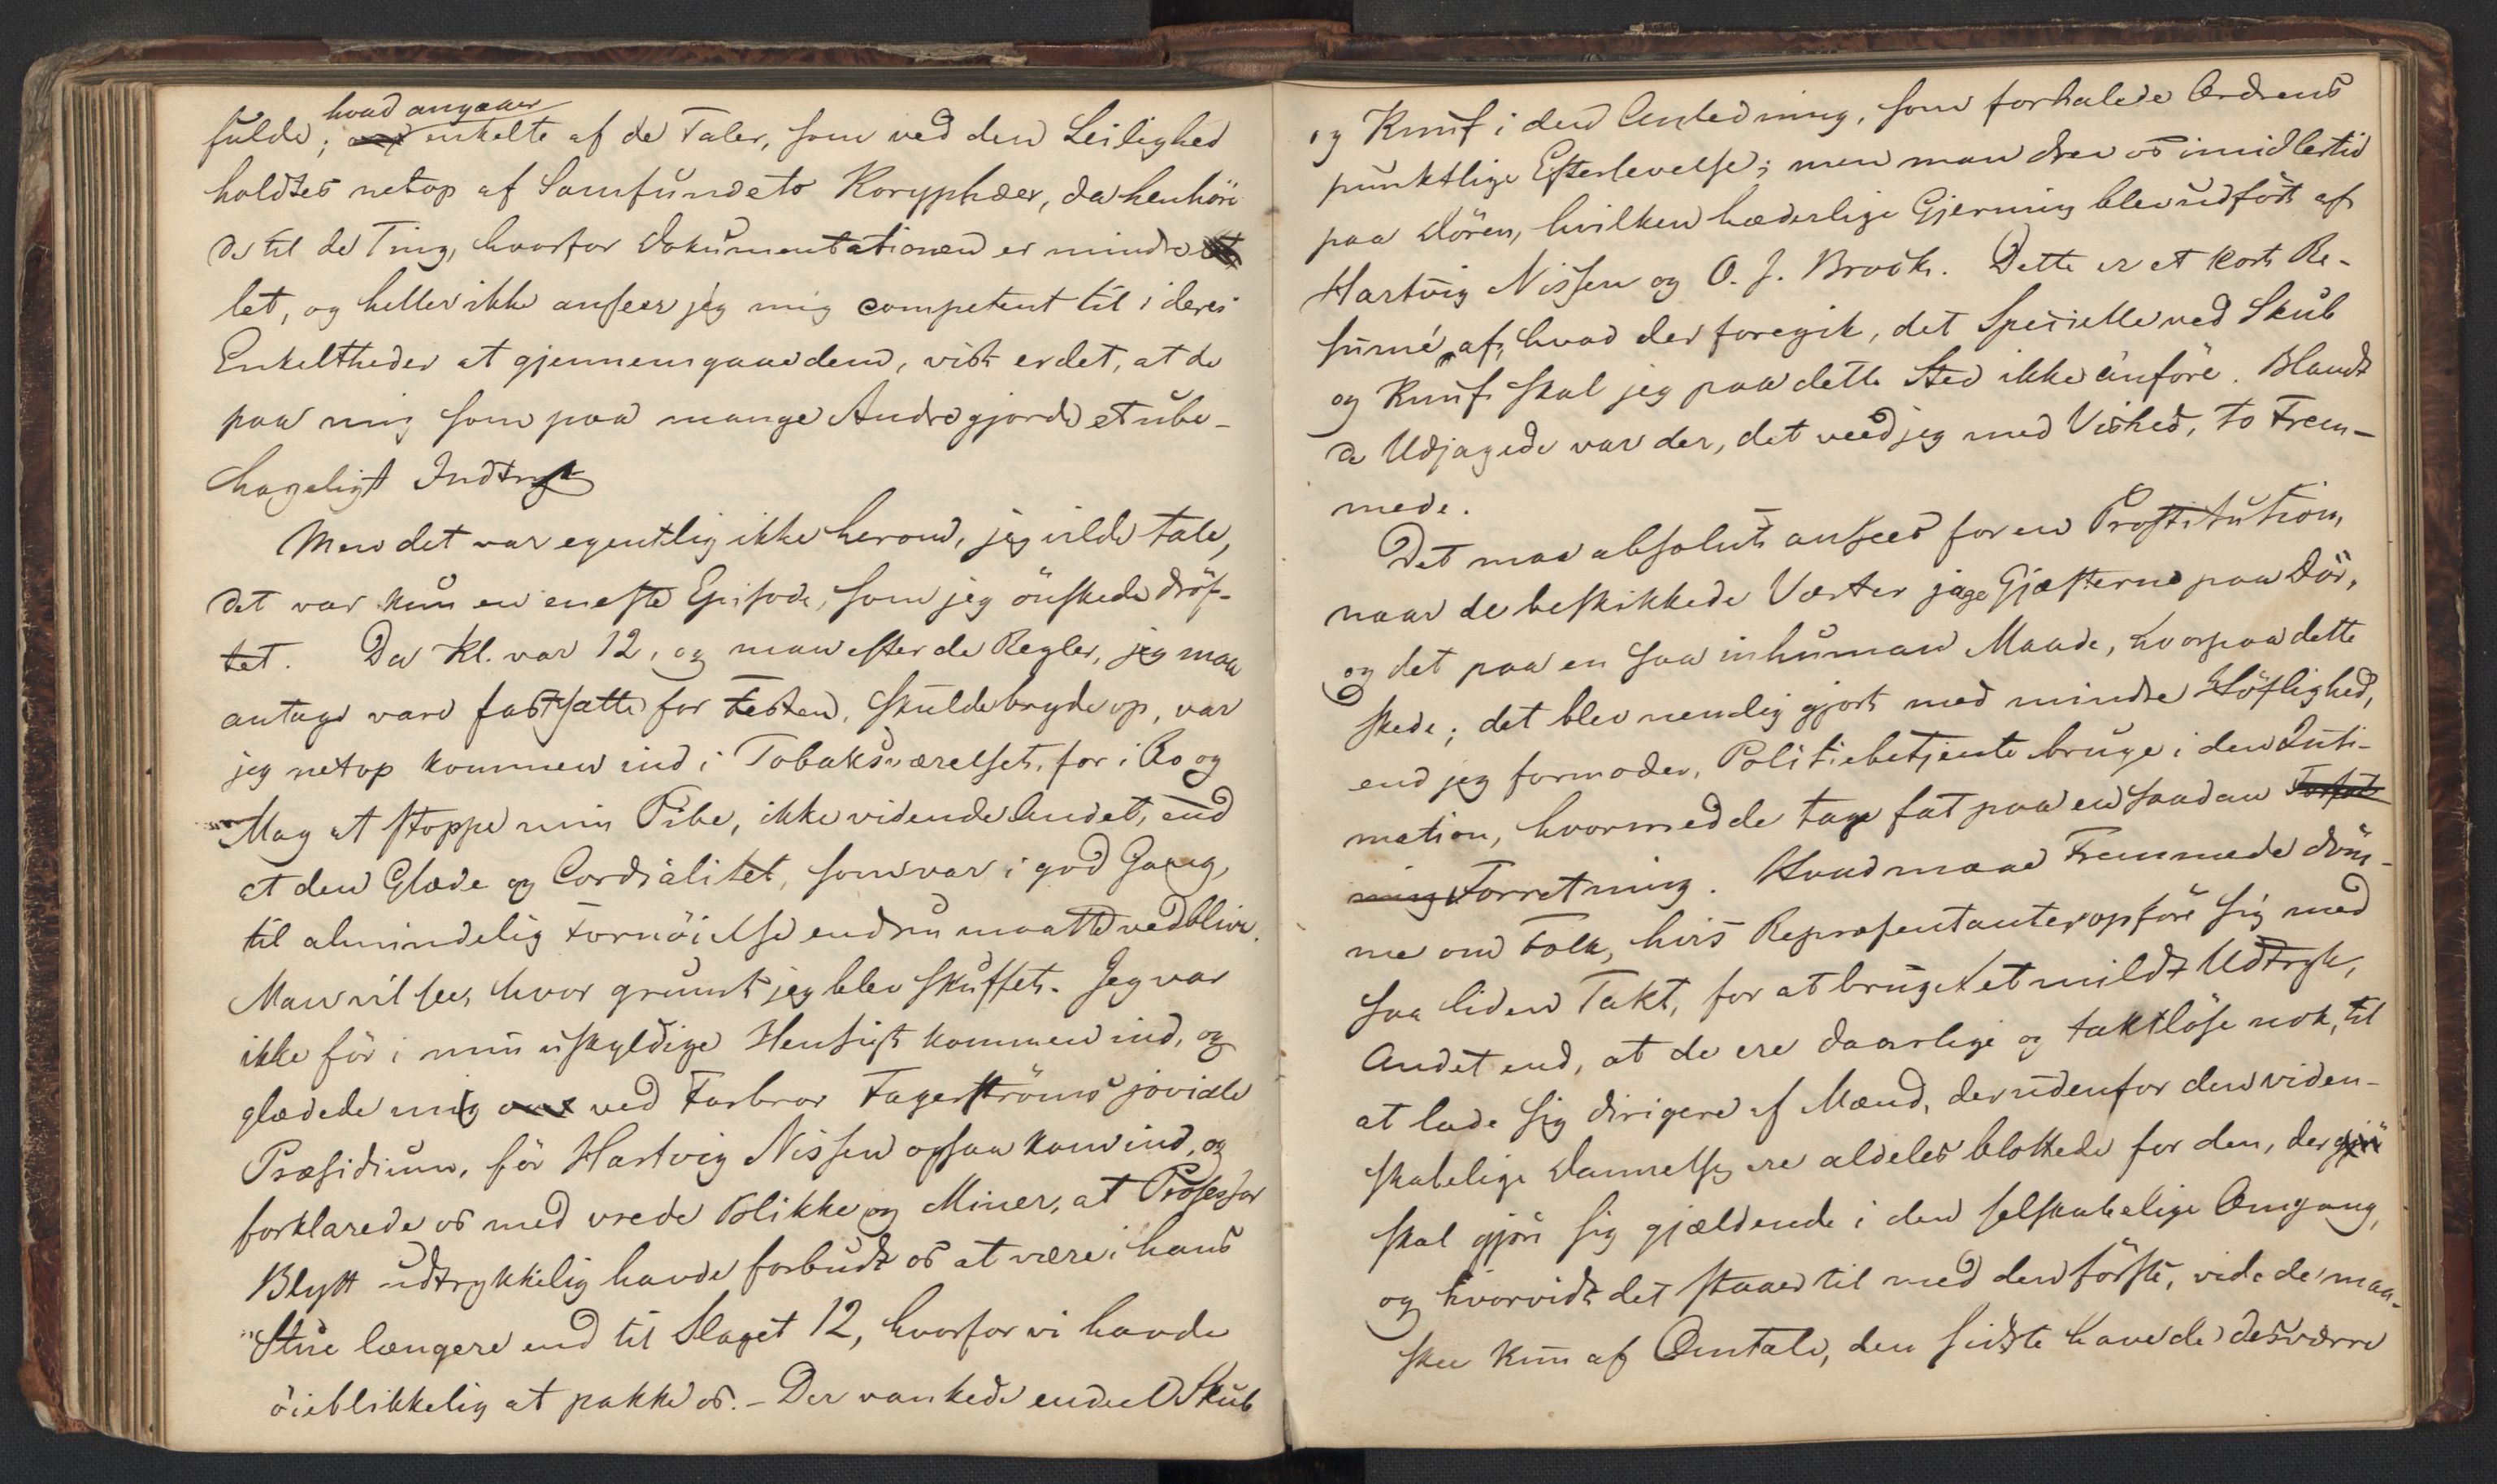 hvad angaaer
fulde; enkelte af de Taler, som ved den Leilighed
holdtes netop af Samfundets Koryphæer, da henhöre
de til de Ting, hvorfor Dokumentationen er mindre
let, og heller ikke anseer jeg mig competent til i deres
Enkeltheder at gjennemgaae dem, vist er det, at de
paa mig som paa mange Andre gjorde et ube-
hageligt Indtryk
Men det var egentlig ikke herom, jeg vilde tale,
det var kun en eneste Episode, som jeg önskede dröf-
tet. Da Kl. var 12, og man efter de Regler, jeg maa
antage vare fastsatte for Festen, skulde bryde op, var
jeg netop kommen ind i Tobaksværelset, for i Ro og
Mag at stoppe min Pibe, ikke vidende Andet, end
at den Glæde og Cordialitet, som var i god Gang,
til almindelig Fornöielse endnu maatte vedblive.
Man vil see, hvor grumt jeg blev skuffet. Jeg var
ikke för i min uskyldige Hensigt kommen ind, og
glædede mig ved Farbror Fagerströms joviale
Præsidium, för Hartvig Nissen ogsaa kom ind, og
forklarede os med vrede Blikke og Miner, at Professor
Blytt udtrykkelig havde forbudt os at være i hans
Stue længere end til Slaget 12, hvorfor vi havde
öieblikkelig at pakke os. - Der vankede endeel Skub
og Knuf i den Anledning, som forhalede Ordrens
punktlige Efterlevelse; men man drev os imidlertid
paa Dören, hvilken hæderlige Gjerning blev udfört af
Hartvig Nissen og O. J. Broch. Dette er et kort Re-
sumé af, hvad der foregik, det Specielle ved Skub
og Knuf skal jeg paa dette Sted ikke anföre. Blandt
de Udjagede var der, det veed jeg med Vished, to Frem-
mede.
Det maa absolut ansees for en Prostitution,
naar de beskikkede Værter jage Gjæsterne paa Dör,
og det paa en saa inhuman Maade, hvorpaa dette
skede; det blev nemlig gjort med mindre Höflighed,
end jeg formoder, Politiebetjente bruge i den Inti-
mation, hvormed de tage fat paa en saadan
Forretning. Hvad maae Fremmede döm-
me om Folk, hvis Repræsentanter opföre sig med
saa liden Takt, for at bruge et mildt Udtryk,
Andet end, at de ere daarlige og taktlöse nok, til
at lade sig dirigere af Mænd, der udenfor den viden-
skabelige Dannelse ere aldeles blottede for den, der
skal gjöre sig gjældende i den selskabelige Omgang,
og hvorvidt det staaer til med den förste, vide de maa-
skee kun af Omtale, den sidste have de desværre